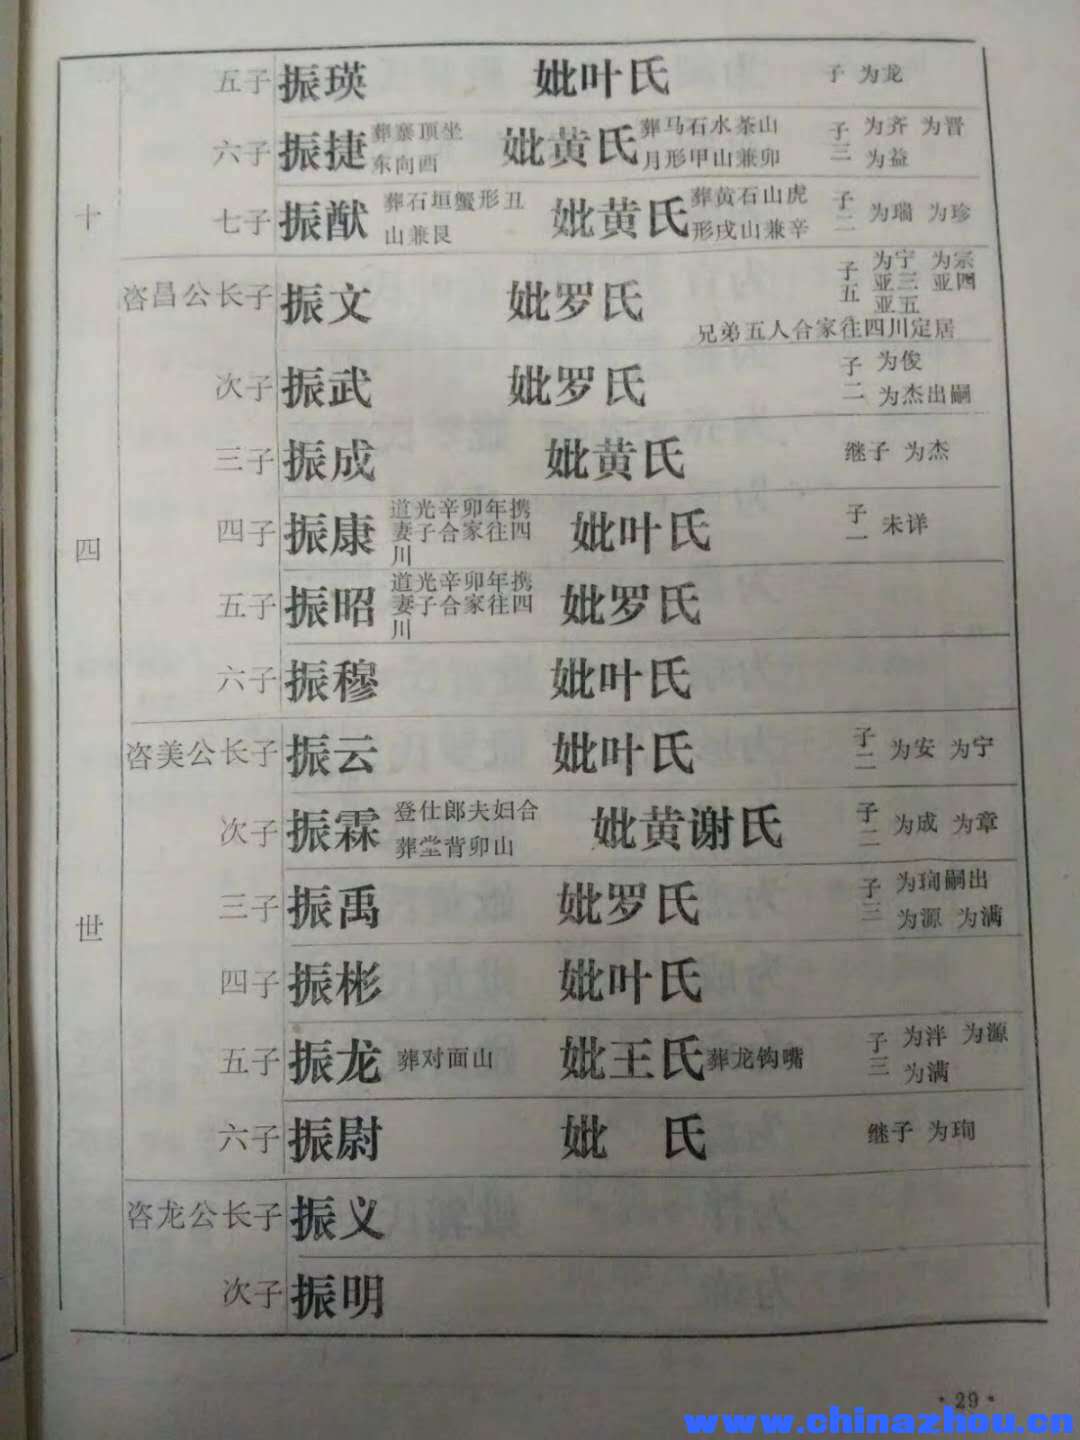 十四世
五子 振瑛 妣叶氏 子 为龙
六子 振捷 葬寨顶坐东向酉 妣黄氏 葬马石水茶山月形甲山兼卯 子三 为齐 为晋 为益
七子 振猷 葬石垣蟹形丑山兼艮 妣黄氏 葬黄石山虎形戌山兼辛 子二 为瑞 为珍
咨昌公长子 振文 妣罗氏 子五 为宁 为宗 亚三 亚四 亚五
兄弟五人合家往四川定居
次子 振武 妣罗氏 子二 为俊 为杰出嗣
三子 振成 妣黄氏 继子 为杰
四子 振康 道光辛卯年携妻子合家往四川 妣叶氏 子一 未详
五子 振昭 道光辛卯年携妻子合家往四川 妣罗氏
六子 振穆 妣叶氏
咨美公长子 振云 妣叶氏 子二 为安 为宁
次子 振霖 登仕郎夫妇合葬堂背卯山 妣黄谢氏 子二 为成 为章
三子 振禹 妣罗氏 子三 为珣嗣出 为源 为满
四子 振彬 妣叶氏
五子 振龙 葬对面山 妣王氏 葬龙钩嘴 子三 为泮 为源 为满
六子 振尉 妣 氏 继子 为珣
咨龙公长子 振义
次子 振明
·29·
www.chinazhou.cn